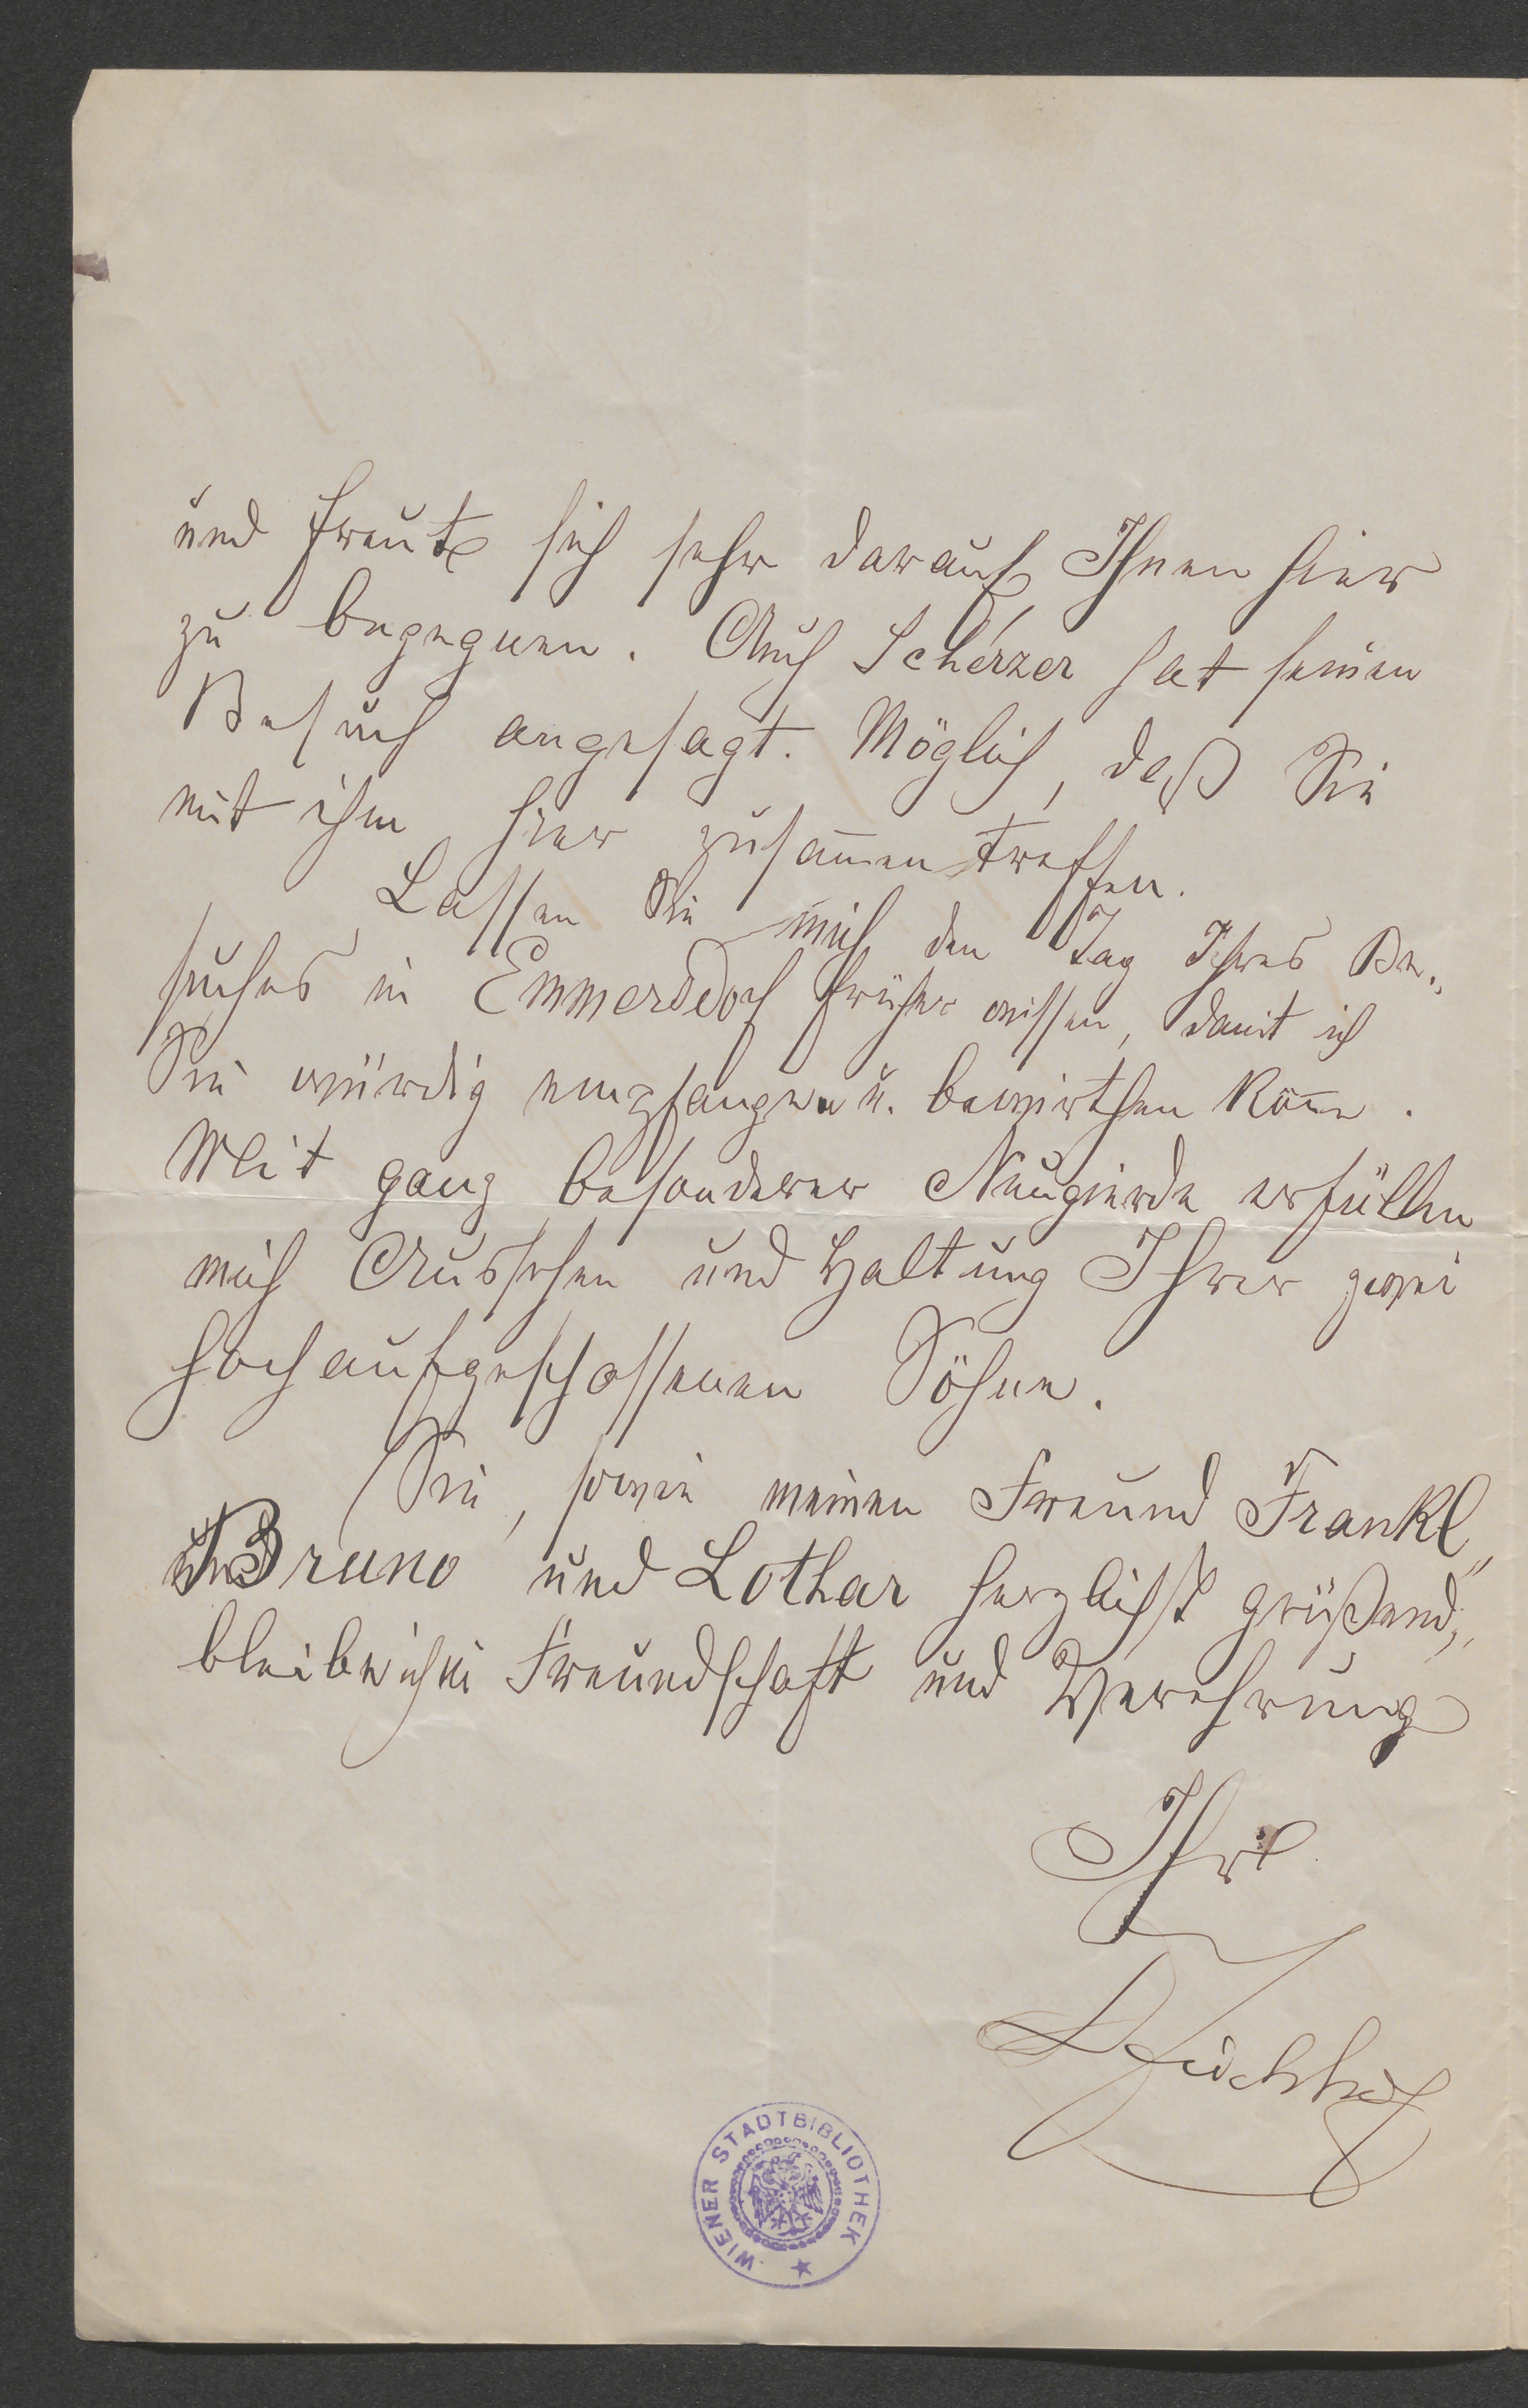 und freute sich sehr darauf, Ihnen hier
zu begegnen. Auch Scherzer hat seinen
Besuch angesagt. Möglich, daß Sie
mit ihm hier zusam̅en treffen.
Lassen Sie mich den Tag Ihres Be„
suches in Emmersdorf früher wissen, damit ich
Sie würdig empfangen u. bewirthen kön̅e.
Mit ganz besonderer Neugierde erfüllen
mich Aussehen und Haltung Ihrer zwei
hochaufgeschossenen Söhne.
Sie, sowie meinen Freund Frankl,
Bruno und Lothar herzlichst grüßend,
bleibe ich in Freundschaft und Verehrung
Ihr
WIENER STADTBIBLIOTHEK